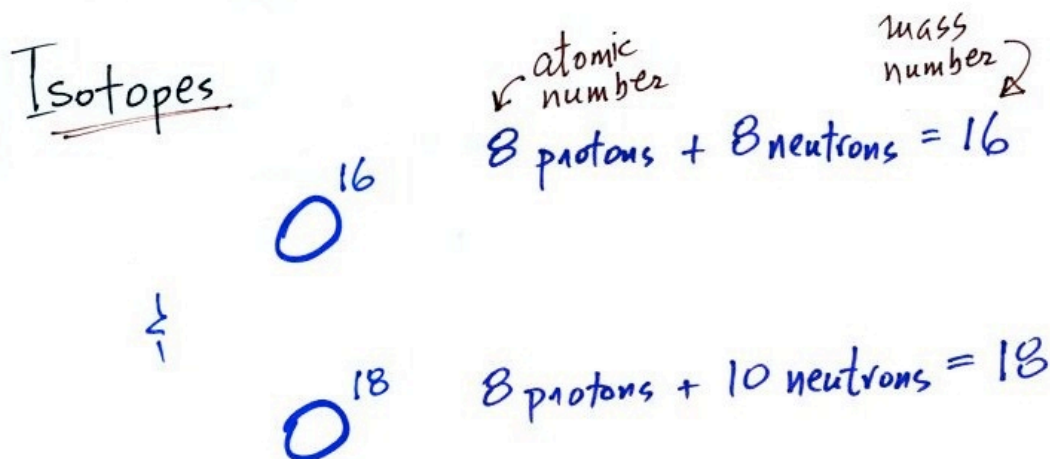 Isotopes
atomic number
mass number
8 protons + 8 neutrons = 16
O 16
&
O 18
8 protons + 10 neutrons = 18